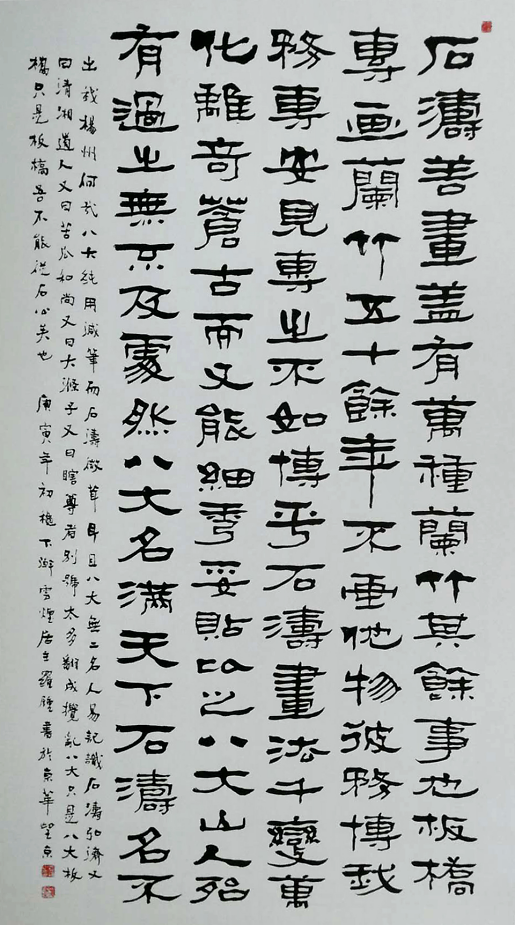 石濤善畫盖有萬種蘭竹其餘事也板橋
專画蘭竹五十餘年不畫他物彼務博我
務專安見專之不如博乎石濤畫法千變萬
化離奇蒼古而又能細秀妥貼以之八大山人殆
有過之無不及處然八大名滿天下石濤名不
出我楊州何哉八大純用減筆而石濤微茸耳且八大無二名人易記識石濤弘濟又
曰清湘道人又曰苦瓜和尚又曰大滌子又曰瞎尊者別號太多翻成攪亂八大只是八大板
橋只是板橋吾不能從石公矣也 庚寅年初下澣雪煙居主羅書於京華望京